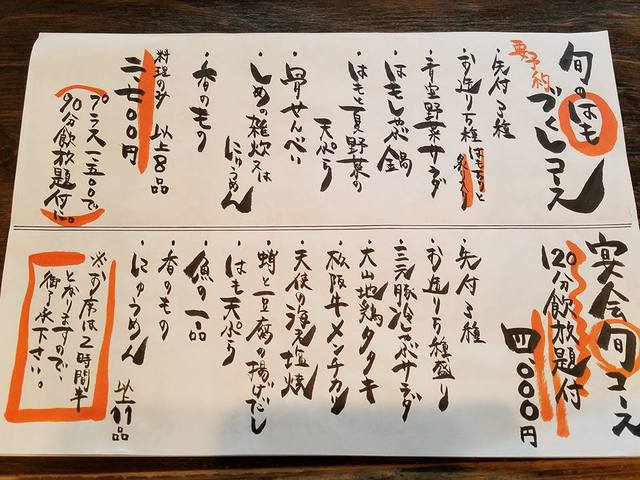 旬のはも
づくしコース
要予約
・先付3種
・お造り5種はもちりと
炙り入り
・青空野菜サラダ
・はもしゃぶ鍋
・はもと夏野菜の
天ぷら
・骨せんべい
・しめの雑炊又は
にゅうめん
・香のもの
以上8品
料理のみ
二、七〇〇円
プラス一、五〇〇で
90分飲放題付に。
宴会旬コース
120分飲放題付
四〇〇〇円
・先付3種
・お造り5種盛り
・三元豚冷しゃぶサラダ
・大山地鶏タタキ
・松阪牛メンチカツ
・天使の海老塩焼
・蛸と豆腐の揚げだし
・はも天ぷら
・魚の一品
・香のもの
・にゅうめん
以上11品
※お席は2時間半
となりますので、
御了承下さい。